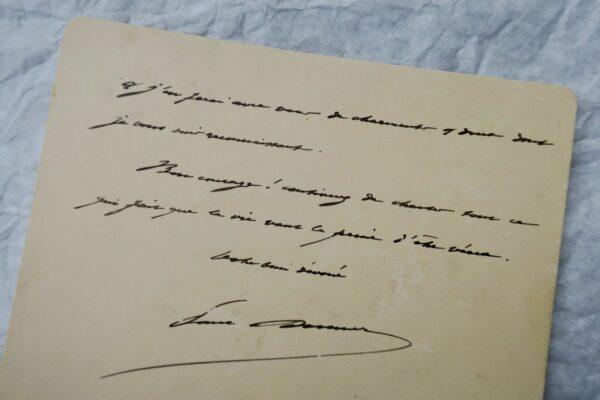 et j'en ferai avec vous de charmants dont
je vous suis reconnaissant.
Bon courage ! continuez de chanter tout ce
qui fait que la vie vaut la peine d'être vécue.
Votre bien dévoué
Doumer